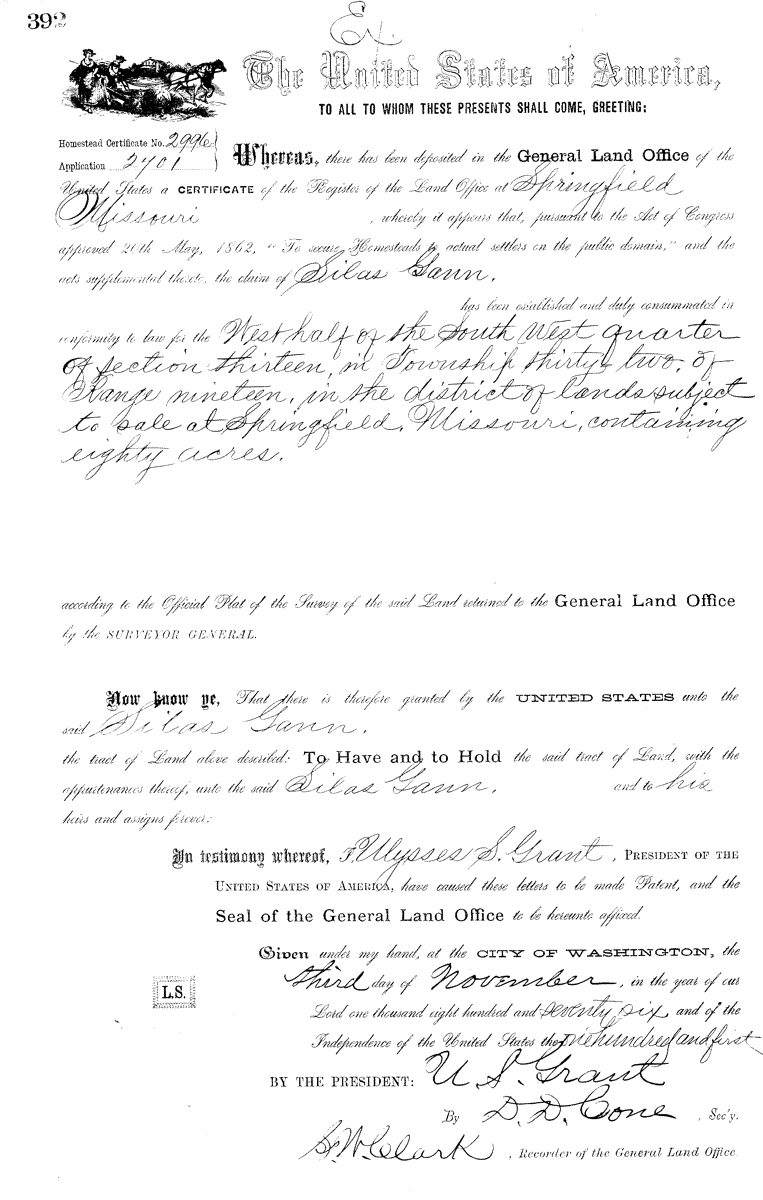 392
Ex
The United States of America,
TO ALL TO WHOM THESE PRESENTS SHALL COME, GREETING:
Homestead Certificate No. 2996
Application 2701
Whereas, there has been deposited in the General Land Office of the
United States a CERTIFICATE of the Register of the Land Office at Springfield
Missouri , whereby it appears that, pursuant to the Act of Congress
approved 20th May, 1862, "To secure Homesteads to actual settlers on the public domain," and the
acts supplemental thereto, the claim of Silas Gann.
has been established and duly consummated in
conformity to law for the West half of the South West quarter
of section thirteen, in Township thirty two, of
Range nineteen, in the district of lands subject
to sale at Springfield, Missouri, containing
eighty acres.
according to the Official Plat of the Survey of the said Land returned to the General Land Office
by the SURVEYOR GENERAL.
Now know ye, That there is therefore granted by the UNITED STATES unto the
said Silas Gann.
the tract of Land above described: To Have and to Hold the said tract of Land, with the
appurtenances thereof, unto the said Silas Gann. and to his
heirs and assigns forever:
In testimony whereof, I, Ulysses S. Grant, PRESIDENT OF THE
UNITED STATES OF AMERICA, have caused these letters to be made Patent, and the
Seal of the General Land Office to be hereunto affixed.
Given under my hand, at the CITY OF WASHINGTON, the
third day of November, in the year of our
L.S.
Lord one thousand eight hundred and seventy six and of the
Independence of the United States the one hundred and first
BY THE PRESIDENT: U. S. Grant
By D. D. Cone, Sec'y.
S. W. Clark, Recorder of the General Land Office.